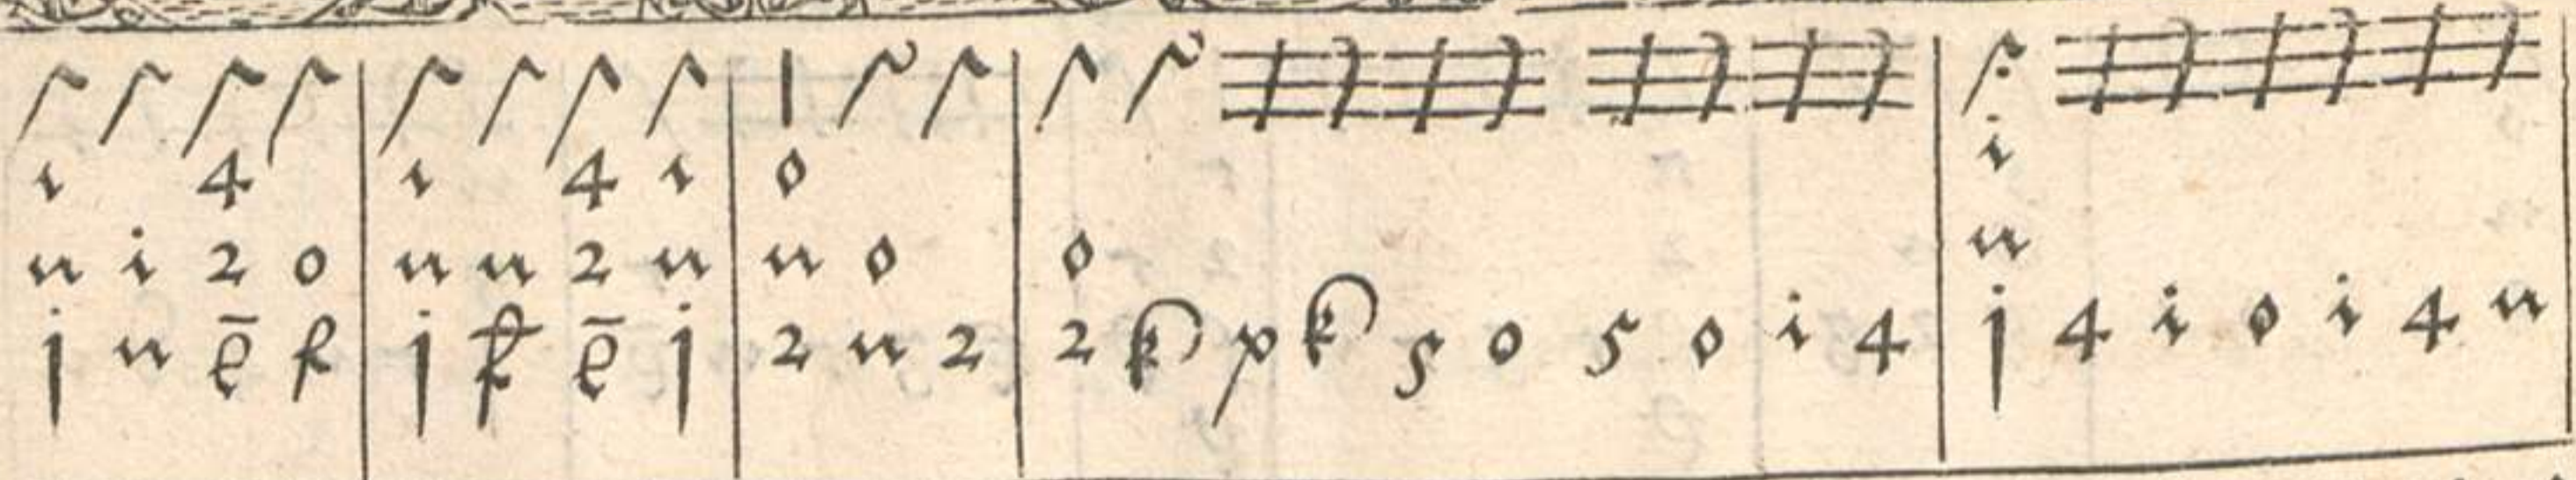 ı 4 ı 4 ı o i
n i 2 o n n 2 n n o o n
j n ē k j k ē j 2 n 2 2 k p k 5 o 5 o i 4 j 4 i o i 4 n